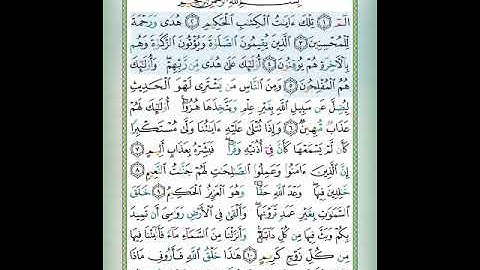 بِسْمِ ٱللَّهِ ٱلرَّحْمَٰنِ ٱلرَّحِيمِ
الٓمٓ ۝١ تِلْكَ ءَايَٰتُ ٱلْكِتَٰبِ ٱلْحَكِيمِ ۝٢ هُدًى وَرَحْمَةً
لِّلْمُحْسِنِينَ ۝٣ ٱلَّذِينَ يُقِيمُونَ ٱلصَّلَوٰةَ وَيُؤْتُونَ ٱلزَّكَوٰةَ وَهُم
بِٱلْءَاخِرَةِ هُمْ يُوقِنُونَ ۝٤ أُو۟لَٰٓئِكَ عَلَىٰ هُدًى مِّن رَّبِّهِمْ ۖ وَأُو۟لَٰٓئِكَ
هُمُ ٱلْمُفْلِحُونَ ۝٥ وَمِنَ ٱلنَّاسِ مَن يَشْتَرِى لَهْوَ ٱلْحَدِيثِ
لِيُضِلَّ عَن سَبِيلِ ٱللَّهِ بِغَيْرِ عِلْمٍ وَيَتَّخِذَهَا هُزُوًا ۚ أُو۟لَٰٓئِكَ لَهُمْ
عَذَابٌ مُّهِينٌ ۝٦ وَإِذَا تُتْلَىٰ عَلَيْهِ ءَايَٰتُنَا وَلَّىٰ مُسْتَكْبِرًا
كَأَن لَّمْ يَسْمَعْهَا كَأَنَّ فِىٓ أُذُنَيْهِ وَقْرًا ۖ فَبَشِّرْهُ بِعَذَابٍ أَلِيمٍ ۝٧
إِنَّ ٱلَّذِينَ ءَامَنُوا۟ وَعَمِلُوا۟ ٱلصَّٰلِحَٰتِ لَهُمْ جَنَّٰتُ ٱلنَّعِيمِ ۝٨
خَٰلِدِينَ فِيهَا ۖ وَعْدَ ٱللَّهِ حَقًّا ۚ وَهُوَ ٱلْعَزِيزُ ٱلْحَكِيمُ ۝٩ خَلَقَ
ٱلسَّمَٰوَٰتِ بِغَيْرِ عَمَدٍ تَرَوْنَهَا ۖ وَأَلْقَىٰ فِى ٱلْأَرْضِ رَوَٰسِىَ أَن تَمِيدَ
بِكُمْ وَبَثَّ فِيهَا مِن كُلِّ دَآبَّةٍ ۚ وَأَنزَلْنَا مِنَ ٱلسَّمَآءِ مَآءً فَأَنۢبَتْنَا فِيهَا
مِن كُلِّ زَوْجٍ كَرِيمٍ ۝١٠ هَٰذَا خَلْقُ ٱللَّهِ فَأَرُونِى مَاذَا